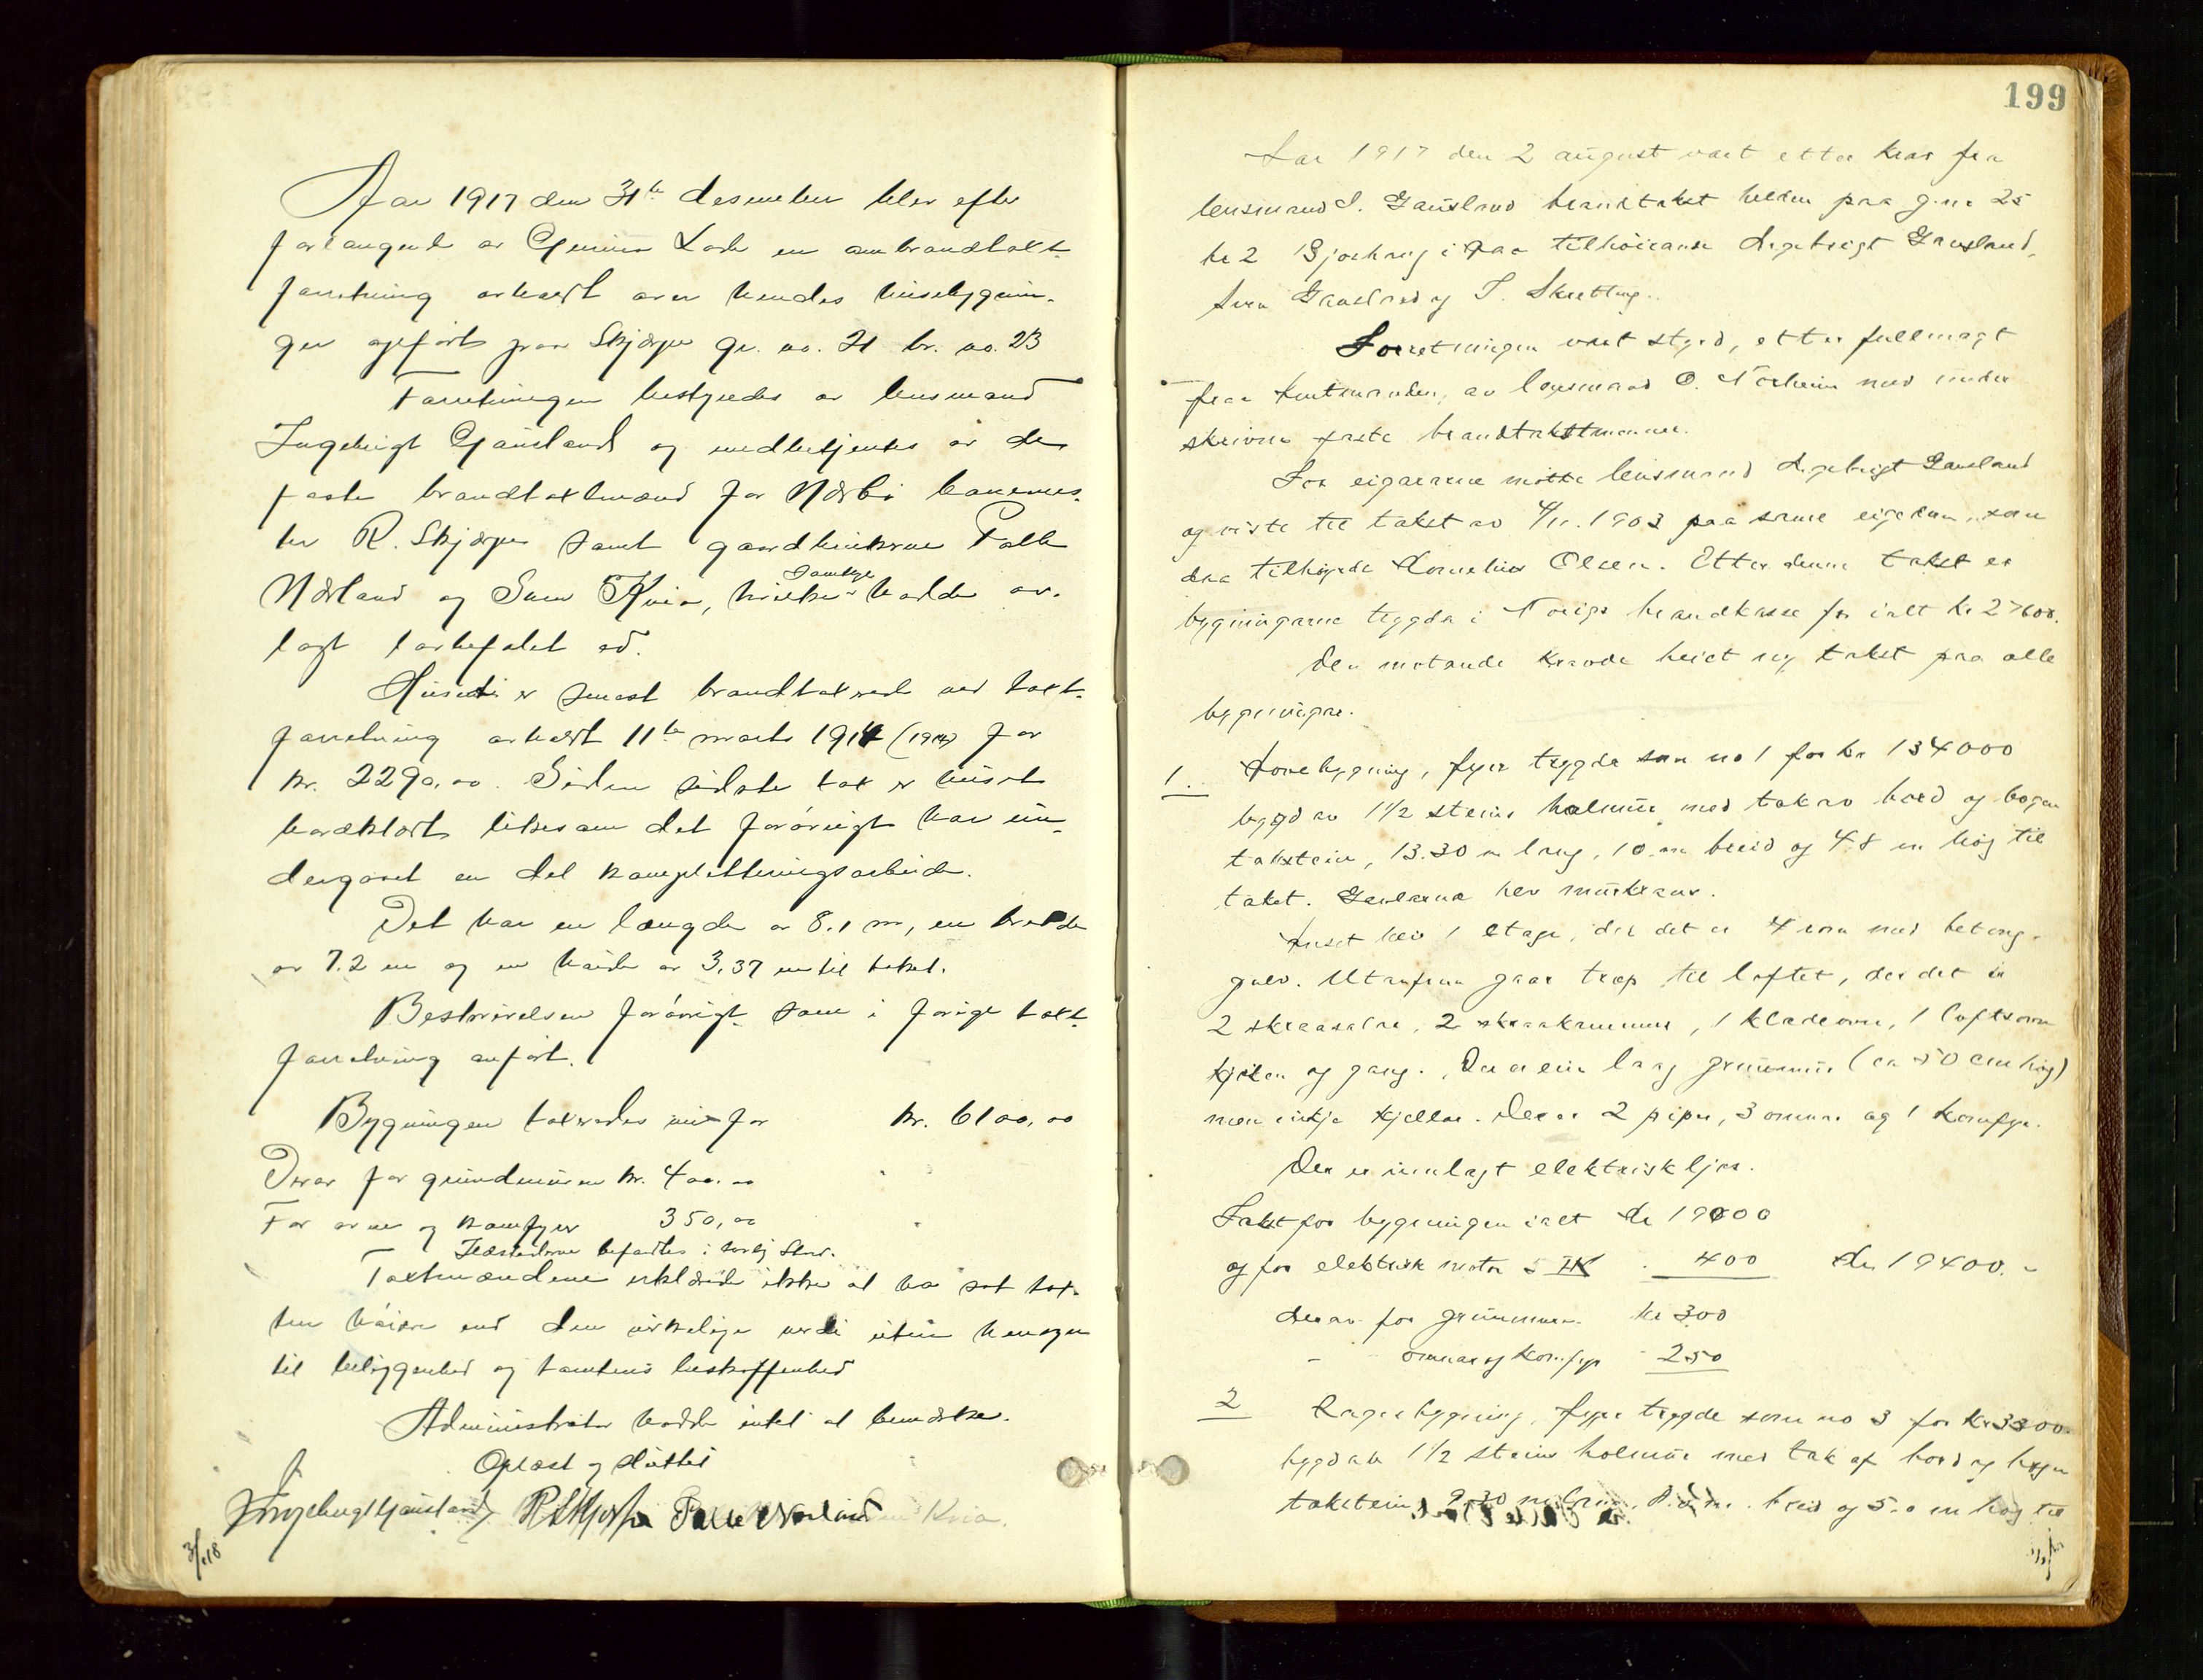 Aar 1917 den 31te desember blev efter
forlangende av Gunner Lode en ombrandtakt-
forretning avholdt over hendes husebygnin-
ger opført paa Skjærpe gr. no. 21 br. no. 23
Forretningen bestyredes av lensmand
Ingebrigt Gausland og medbetjentes av de
faste brandtaxtmænd for Nærbø
R. Skjærpe samt gaardbrukerne Palle
Nærland og Sven Kvia, hvilke samtlige hadde av-
lagt lovbefalet ed.
Huset er senest brandtaxeret ved taxt-
forretning avholdt 11te marts 1914 (1914) for
kr. 2290,00. Siden sidste tax er huset
bordklædt likesom det forøvrigt har un-
dergaaet en del kompletteringsarbeide.
Det har en længde av 8.1 m, en bredde
av 7.2 m og en høide av 3.37 m til taket.
Beskrivelsen forøvrigt som i forrige taxt-
forretning anført.
Bygningen taxeredes nu for kr. 6100,00
Derav for grundmuren kr. 400.00
For ovne og komfyrer 350,00
Ildstederne befandtes i lovlig stand.
Taxtmændene erklærede ikke at ha sat tax-
ten høiere end den virkelige verdi uten hensyn
til beliggenhed og tomtens beskaffenhed
Administrator hadde intet at bemerke.
Oplæst og sluttet
Ingebrigt Gausland R Skjærpe Palle Nærland Kvia.
3/1 18
199
Aar 1917 den 2 august vart etter krav fra
lensmand I. Gausland brandtakst halden paa g.nr 25
br 2 i tilhøirande Ingebrigt Gausland,
Sven Gausland og T. Skretting.
Forretningen vart styrd, etter fullmagt
fraa Amtmanden, av lensmand O. Norheim med under
skrivne faste brandtakstmenner.
For eigararne møtte lensmand Ingebrigt Gausland
og viste til takst av 4/11. 1903 paa same eigedom, som
daa tilhøyrde Kornelius Olsen. Etter denne takst er
bygningarne tryggda i Norigs brandkasse for ialt kr 27600.
Den møtande kravde heict ny takst paa alle
bygningar.
1. bygning, fyrr tryggda som no 1 for kr 134000
byggd av 1½ steins holmur med tak av bord og bogen
takstein, 13.30 m lang, 10 m breid og 4.8 m høg til
taket. Gavlarna hev
Huset hev 1 etage, der det er 4 rom med betong-
gulv. Utanfraa gaar trap til loftet, der det er
2 skraasalar, 2 skraakammer, 1 1 loftsrom
kjøken og gang. Der er ein laag grunnmur (ca 50 cm høg)
men inkje kjellar. Der er 2 piper, 3 omnar og 1 komfyr.
Der er innlagt elektrisk ljos.
Takst for bygningen ialt kr 19000
og for elektrisk motor 5 HK 400 kr 19400.-
derav for grunnmuren kr 300
- omnar og komfyr 250
2 Lagerbygning, fyrr tryggde som no 3 for kr 3300
byggd av 1½ steins holmur med tak af bord og bogen
takstein, 9.30 m lang, breid og 5.0 m høg til